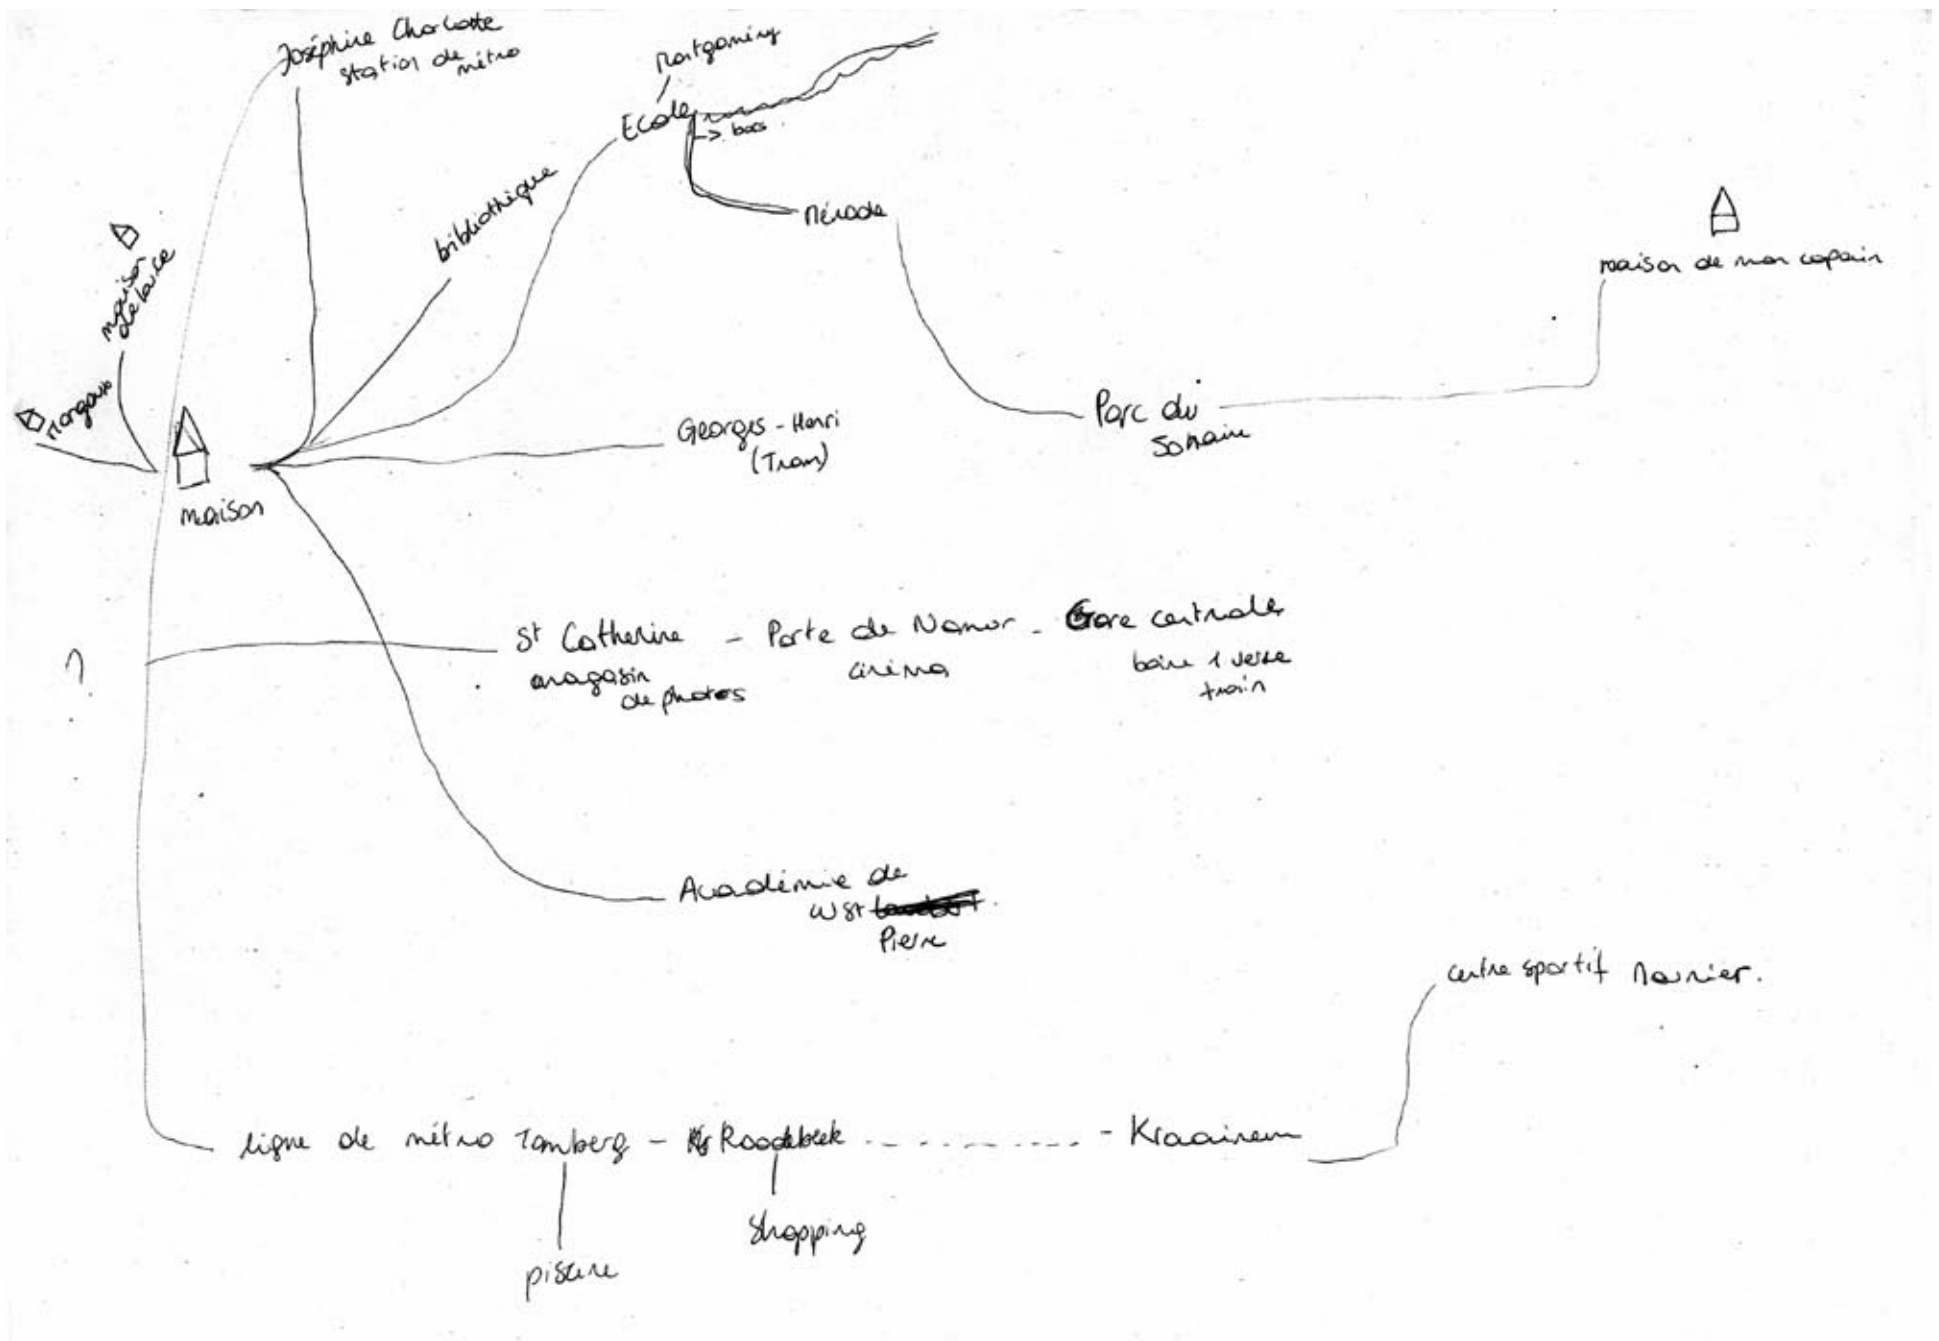 Joséphine Charlotte
station de métro
Montgomery
Ecole
-> bois
Mérode
bibliothèque
maison de mon copain
maison
de Laure
Margaux
maison
Georges - Henri
(Tram)
Parc du
?
St Catherine - Porte de Namur - Gare centrale
magasin
de photos
cinéma
boire 1 verre
train
Académie de
W St
Pierre
centre sportif Mounier.
ligne de métro Tomberg - Roodebeek - - - - - - Kraainem
piscine
shopping